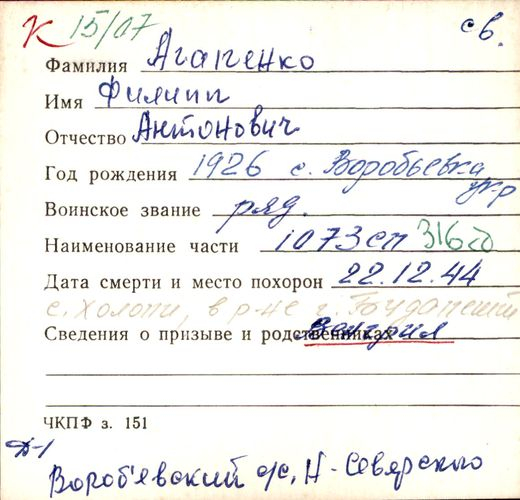 К 15/07 св.
Фамилия Агапенко
Имя Филипп
Отчество Антонович
Год рождения 1926 с. Воробьевка
укр
Воинское звание ряд.
Наименование части 1073 сп 316 сд
Дата смерти и место похорон 22.12.44
с. Холопи, в р-не г.
Сведения о призыве и родственниках Венгрия
ЧКПФ з. 151
Д-1
Вороб'евский с/с, Н-Северского